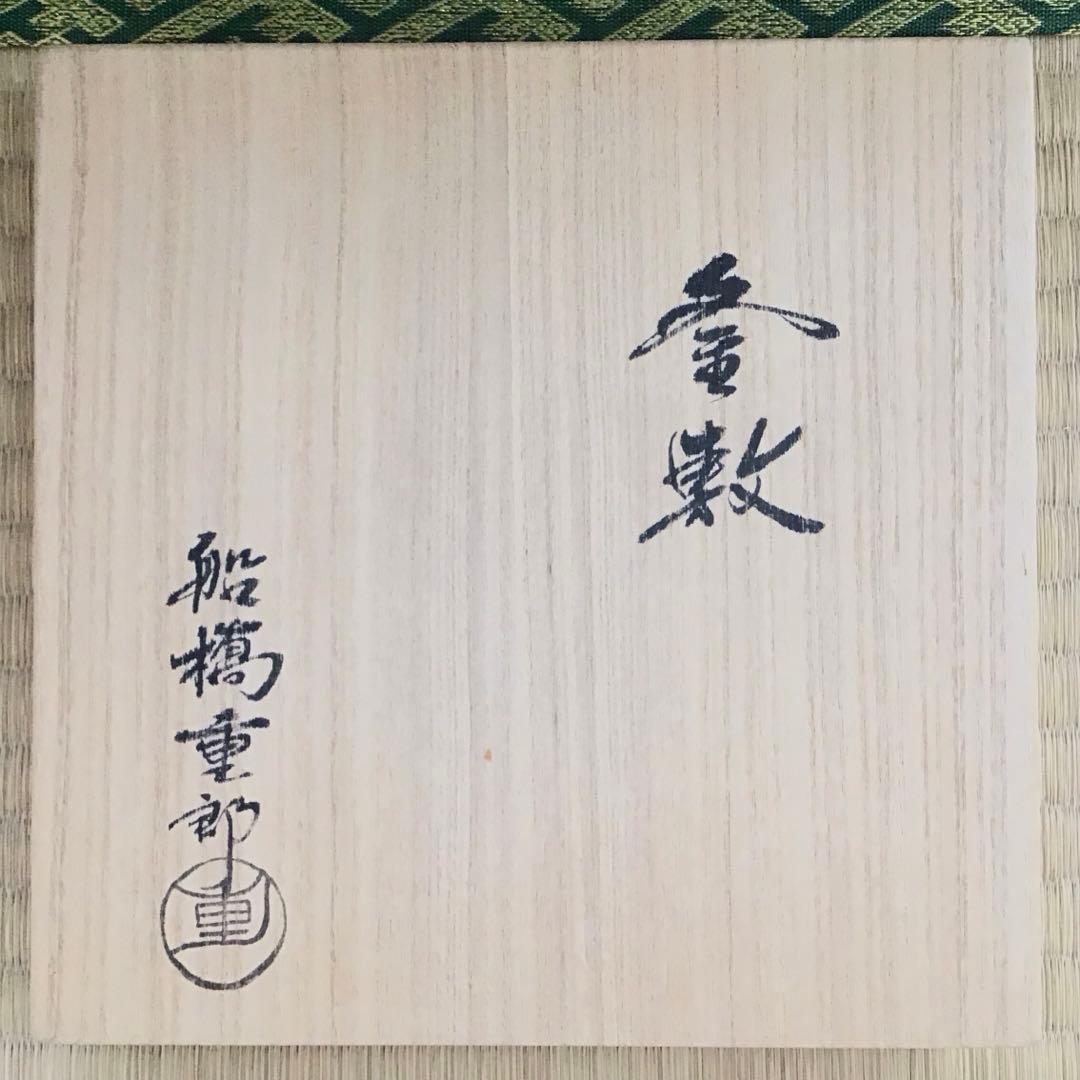 釜敷
船橋重郎
重